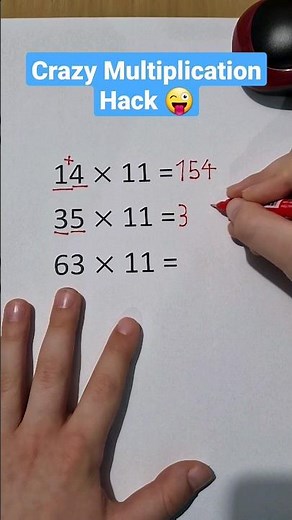 Crazy Multiplication
Hack 😜
+
14 × 11 = 154
35 × 11 = 3
63 × 11 =